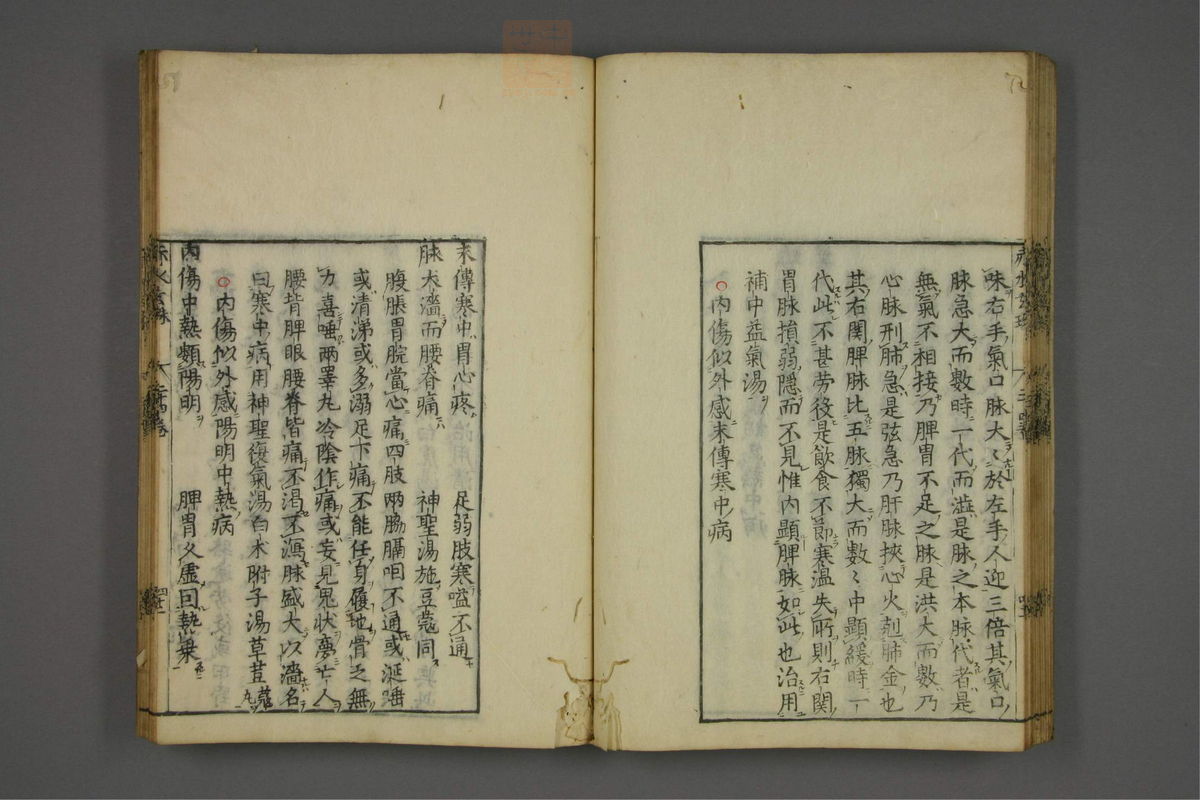 味右手氣口脉大〻於左手人迎三倍其氣口
脉急大而數時一代而澁是脉之本脉代者是
無氣不相接乃脾胃不足之脉是洪大而數乃
心脉刑肺急是弦急乃肝脉挾心火剋肺金也
其右関脾脉比五脉獨大而數〻中顯緩時一
代此不甚劳役是飲食不節寒温失所則右関
胃脉損弱隱而不見惟内顯脾脉如此也治用
補中益氣湯
○内傷似外感末傳寒中病
末傳寒中胃心疼　足弱肢寒嗌不通
脉大濇而腰脊痛　神聖湯施豆蔻同
腹脹胃脘當心痛四肢兩脇膈咽不通或涎唾
或清涕或多溺足下痛不能任身履地骨乏無
力喜唾兩睪丸冷陰作痛或妄見鬼状夢亡人
腰背脾眼腰脊皆痛不渴不瀉脉盛大以濇名
曰寒中病用神聖復氣湯白术附子湯草荳蔻
丸
○内傷似外感陽明中熱病
内傷中熱類陽明　脾胃久虚回熱乗